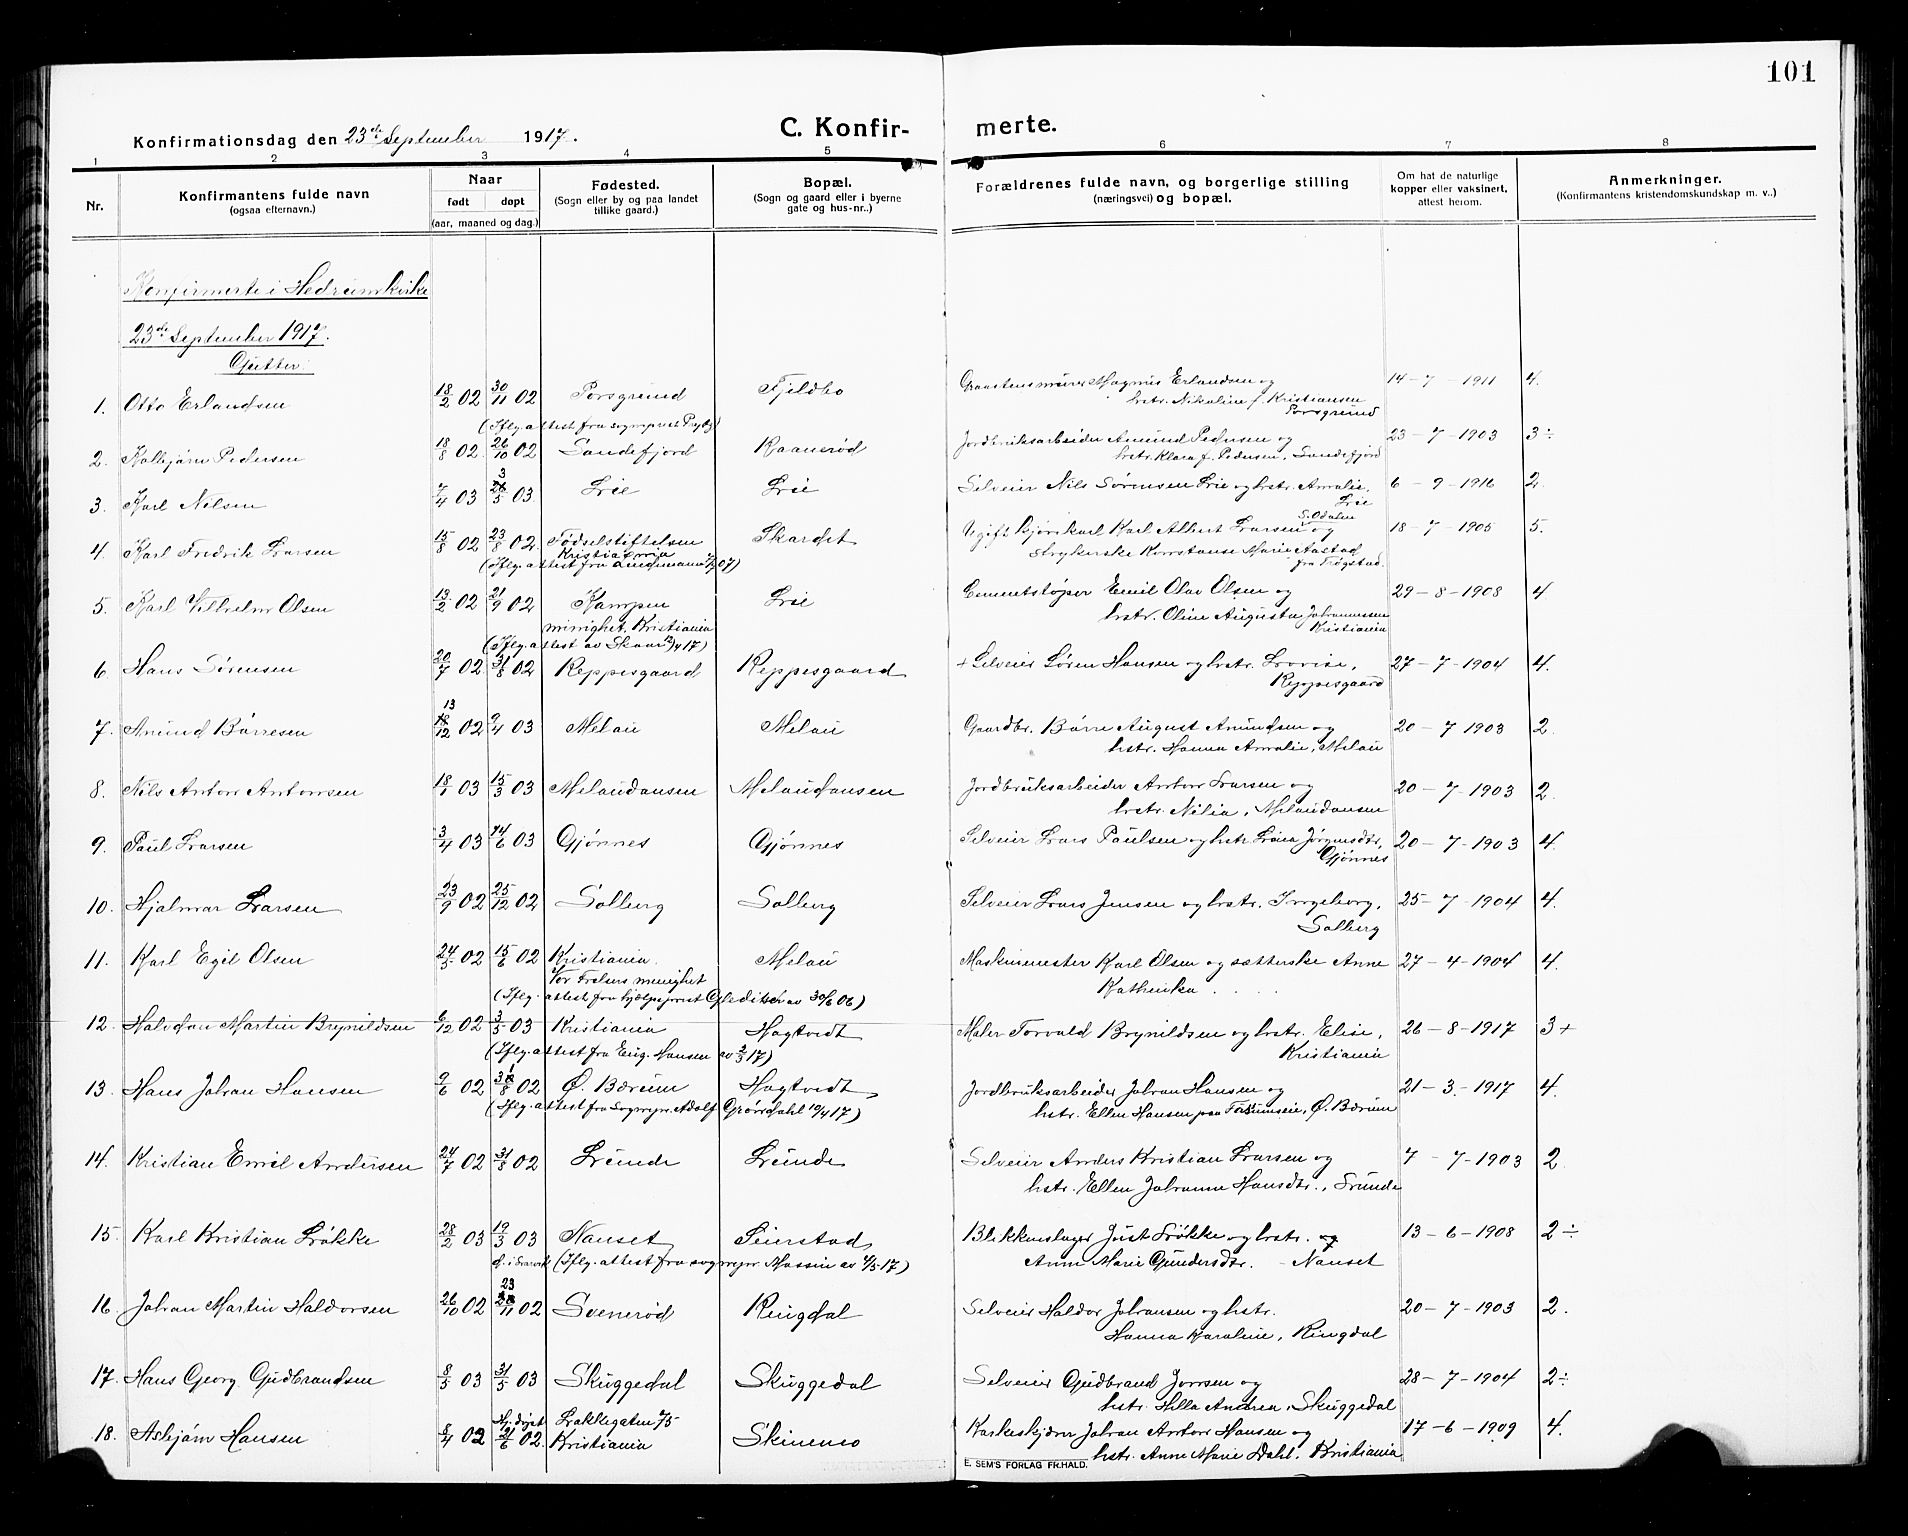 101
Konfirmationsdag den 23de September 1917.
C. Konfir- merte.
1 2 3 4 5 6 7 8
Nr.
Konfirmantens fulde navn
(ogsaa efternavn.)
Naar
født døpt
(aar, maaned og dag.)
Fødested.
(Sogn eller by og paa landet
tillike gaard.)
Bopæl.
(Sogn og gaard eller i byerne
gate og hus-nr..)
Forældrenes fulde navn, og borgerlige stilling
(næringsvei) og bopæl.
Om hat de naturlige
kopper eller vaksinert,
attest herom.
Anmerkninger.
(Konfirmantens kristendomskundskap m. v..)
Konfirmerte i Hedrum kirke
23de September 1917.
Gutter.
1. Otto Erlandsen 18/2 02 30/11 02 Porsgrund Fjeldbo Graastensmurer Magnus Erlandsen og 14-7-1911 4.
hstr. Nikoline f. Kristiansen
Porsgrund
(Iflg. attest fra sogneprest
2. Kolbjørn Pedersen 18/8 02 26/10 02 Sandefjord Raanerød Jordbruksarbeider Amund Pedersen og 23-7-1903 3÷
hstr. Klara f. Pedersen, Sandefjord
3
3. Karl Nilsen 7/4 03 /5 03 Lie Lie Selveier Nils Sørensen Lie og hstr. Amalie, 6-9-1916 2.
Lie
S. Odalen
4. Karl Fredrik Larsen 15/8 02 23/8 02. Fødselstiftelsen Skardet Ugift Karl Albert Larsen og 18-7-1905 5.
Kristiania strykerske Konstanse Marie Aastad
(Iflg. attest fra Lindemann 07) fra Trøgstad.
5. Karl Vilhelm Olsen 13/2 02 21/9 02 Kampen Lie Cementstøper Emil Olav Olsen og 29-8-1908 4
menighet, Kristiania hstr. Oline Augusta Johannessen
Kristiania
(Iflg. attest av Skaar 17)
6. Hans Sørensen 20/7 02 31/8 02 Reppesgaard Reppesgaard + Selveier Søren Hansen og hstr. Lovise, 27-7-1904 4.
Reppesgaard
13
7. Amund Børresen 12 02 9/4 03 Melau Melau Gaardbr. Børre August Amundsen og 20-7-1903 2.
hstr. Hanna Amalie, Melau
8. Nils Anton Antonsen 18/1 03 15/3 03 Melaudansen Melaudansen Jordbruksarbeider Anton Larsen og 20-7-1903 2.
hstr. Nilia, Melaudansen
9. Paul Larsen 3/4 03 14/6 03 Gjønnes Gjønnes Selveier Lars Paulsen og hstr. Lina Jørgensdtr, 20-7-1903 4.
Gjønnes
10. Hjalmar Larsen 23/9 02 25/12 02 Solberg Solberg Selveier Lars Jensen og hstr. Ingeborg, 25-7-1904 4.
Solberg
11. Karl Egil Olsen 24/5 02 15/6 02 Kristiania. Melau Maskinmester Karl Olsen og sætterske Anne 27-4-1904 4.
Vor Frelsers menighet Kathinka . . .
(Iflg. attest fra hjælpeprest Gleditsch av 30/6 06)
12. Halvdan Martin Brynildsen 6/12 02 3/5 03 Kristiania Hagtvedt Maler Torvald Brynildsen og hstr. Elise, 26-8-1917 3+
Kristiania
(Iflg. attest fra Eug. Hansen av 2/3 17)
13. Hans Johan Hansen 9/6 02 31/8 02 Ø. Bærum Hagtvedt Jordbruksarbeider Johan Hansen og 21-3-1917 4.
(Iflg. attest fra Sognepr. Adolf Grørrdahl 10/4 17) hstr. Ellen Hansen paa , Ø. Bærum
14. Kristian Emil Andersen 24/7 02 31/8 02 Lunde Lunde Selveier Anders Kristian Larsen og 7-7-1903 2.
hstr. Ellen Johanne Hansdtr., Lunde
15. Karl Kristian Løkke 28/2 03 19/3 03 Nanset Seierstad Blikkenslager Just Løkke og hstr. og 13-6-1908 2÷
d. i Larvik (Iflg. attest fra sognepr. Massin av 4/5-17) Anne Marie Gundersdtr. - Nanset
23
16. Johan Martin Haldorsen 26/10 02 /11 02 Svenerød Ringdal Selveier Haldor Johansen og hstr. 20-7-1903 2.
Hanna Karoline, Ringdal
17. Hans Georg Gudbrandsen 8/5 03 31/5 03 Skuggedal Skuggedal Selveier Gudbrand Jonsen og 28-7-1904 2÷
hstr. Hilla Andrea, Skuggedal
Hj. døpt Lakkegaten 75
18. Asbjørn Hansen 8/4 02 21/6 02. Kristiania Skinnmo Karkeskjærer Johan Anton Hansen og 17-6-1909 4.
hstr. Anne Marie Dahl, Kristiania
E. SEM'S FORLAG FR.HALD.